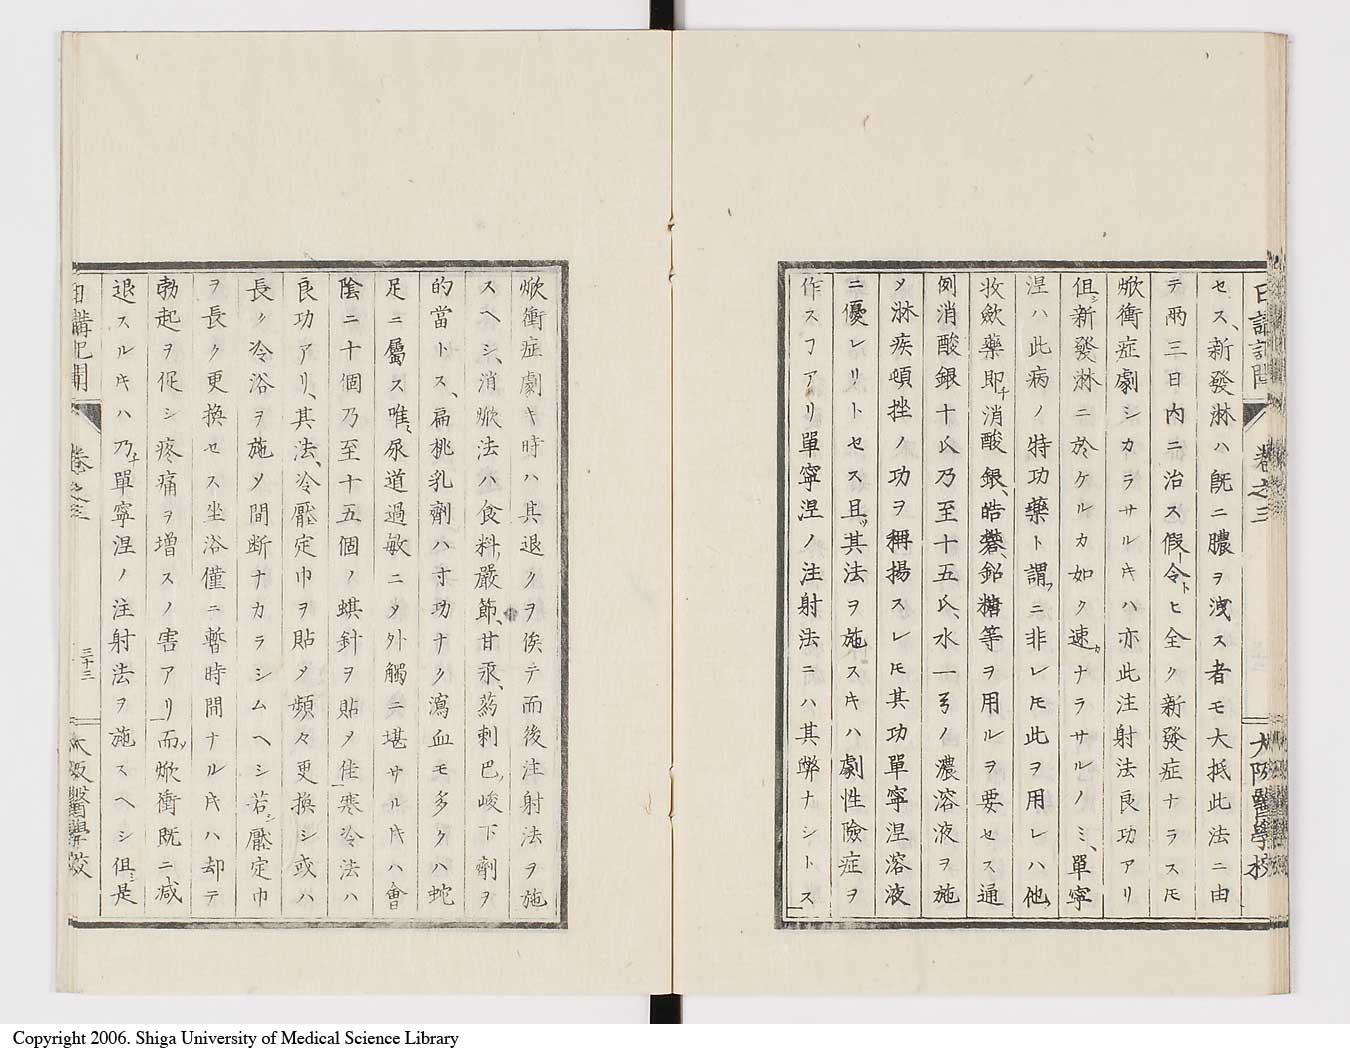 日講記聞 卷之三 大阪醫學校
セス、新發淋ハ既ニ膿ヲ洩ス者モ大抵此法ニ由
テ兩三日内ニ治ス假令ヒ全ク新發症ナラスㇳモ
焮衝症劇シカラサルキハ亦此注射法良功アリ
但シ新發淋ニ於ケルカ如ク速カナラサルノミ、單寧
涅ハ此病ノ特功藥ト謂フニ非レㇳモ此ヲ用レハ他ノ
收歛藥即チ消酸銀、皓礬、鉛糖等ヲ用ルヲ要セス通
例消酸銀十氏乃至十五氏、水一弓ノ濃溶液ヲ施
メ淋疾頓挫ノ功ヲ稱揚スレㇳモ其功單寧涅溶液
ニ優レリトセス且ツ其法ヲ施スキハ劇性險症ヲ
作スヿアリ單寧涅ノ注射法ニハ其弊ナシトス
焮衝症劇キ時ハ其退クヲ俟テ而後注射法ヲ施
スヘシ、消焮法ハ食料嚴節、甘汞、葯剌巴、峻下劑ヲ
的當トス、扁桃乳劑ハ寸功ナク瀉血モ多クハ蛇
足ニ屬ス唯、尿道過敏ニメ外觸ニ堪サルキハ會
陰ニ十個乃至十五個ノ蜞針ヲ貼メ佳寒冷法ハ
良功アリ、其法、冷壓定巾ヲ貼メ頻々更換シ或ハ
長ク冷浴ヲ施メ間断ナカラシムヘシ若シ壓定巾
ヲ長ク更換セス坐浴僅ニ暫時間ナルキハ却テ
勃起ヲ促シ疼痛ヲ增スノ害アリ而ㇱ焮衝既ニ減
退スルキハ乃チ單寧涅ノ注射法ヲ施スヘシ但シ是
日講記聞 卷之三 三十三 大阪醫學校
Copyright 2006. Shiga University of Medical Science Library